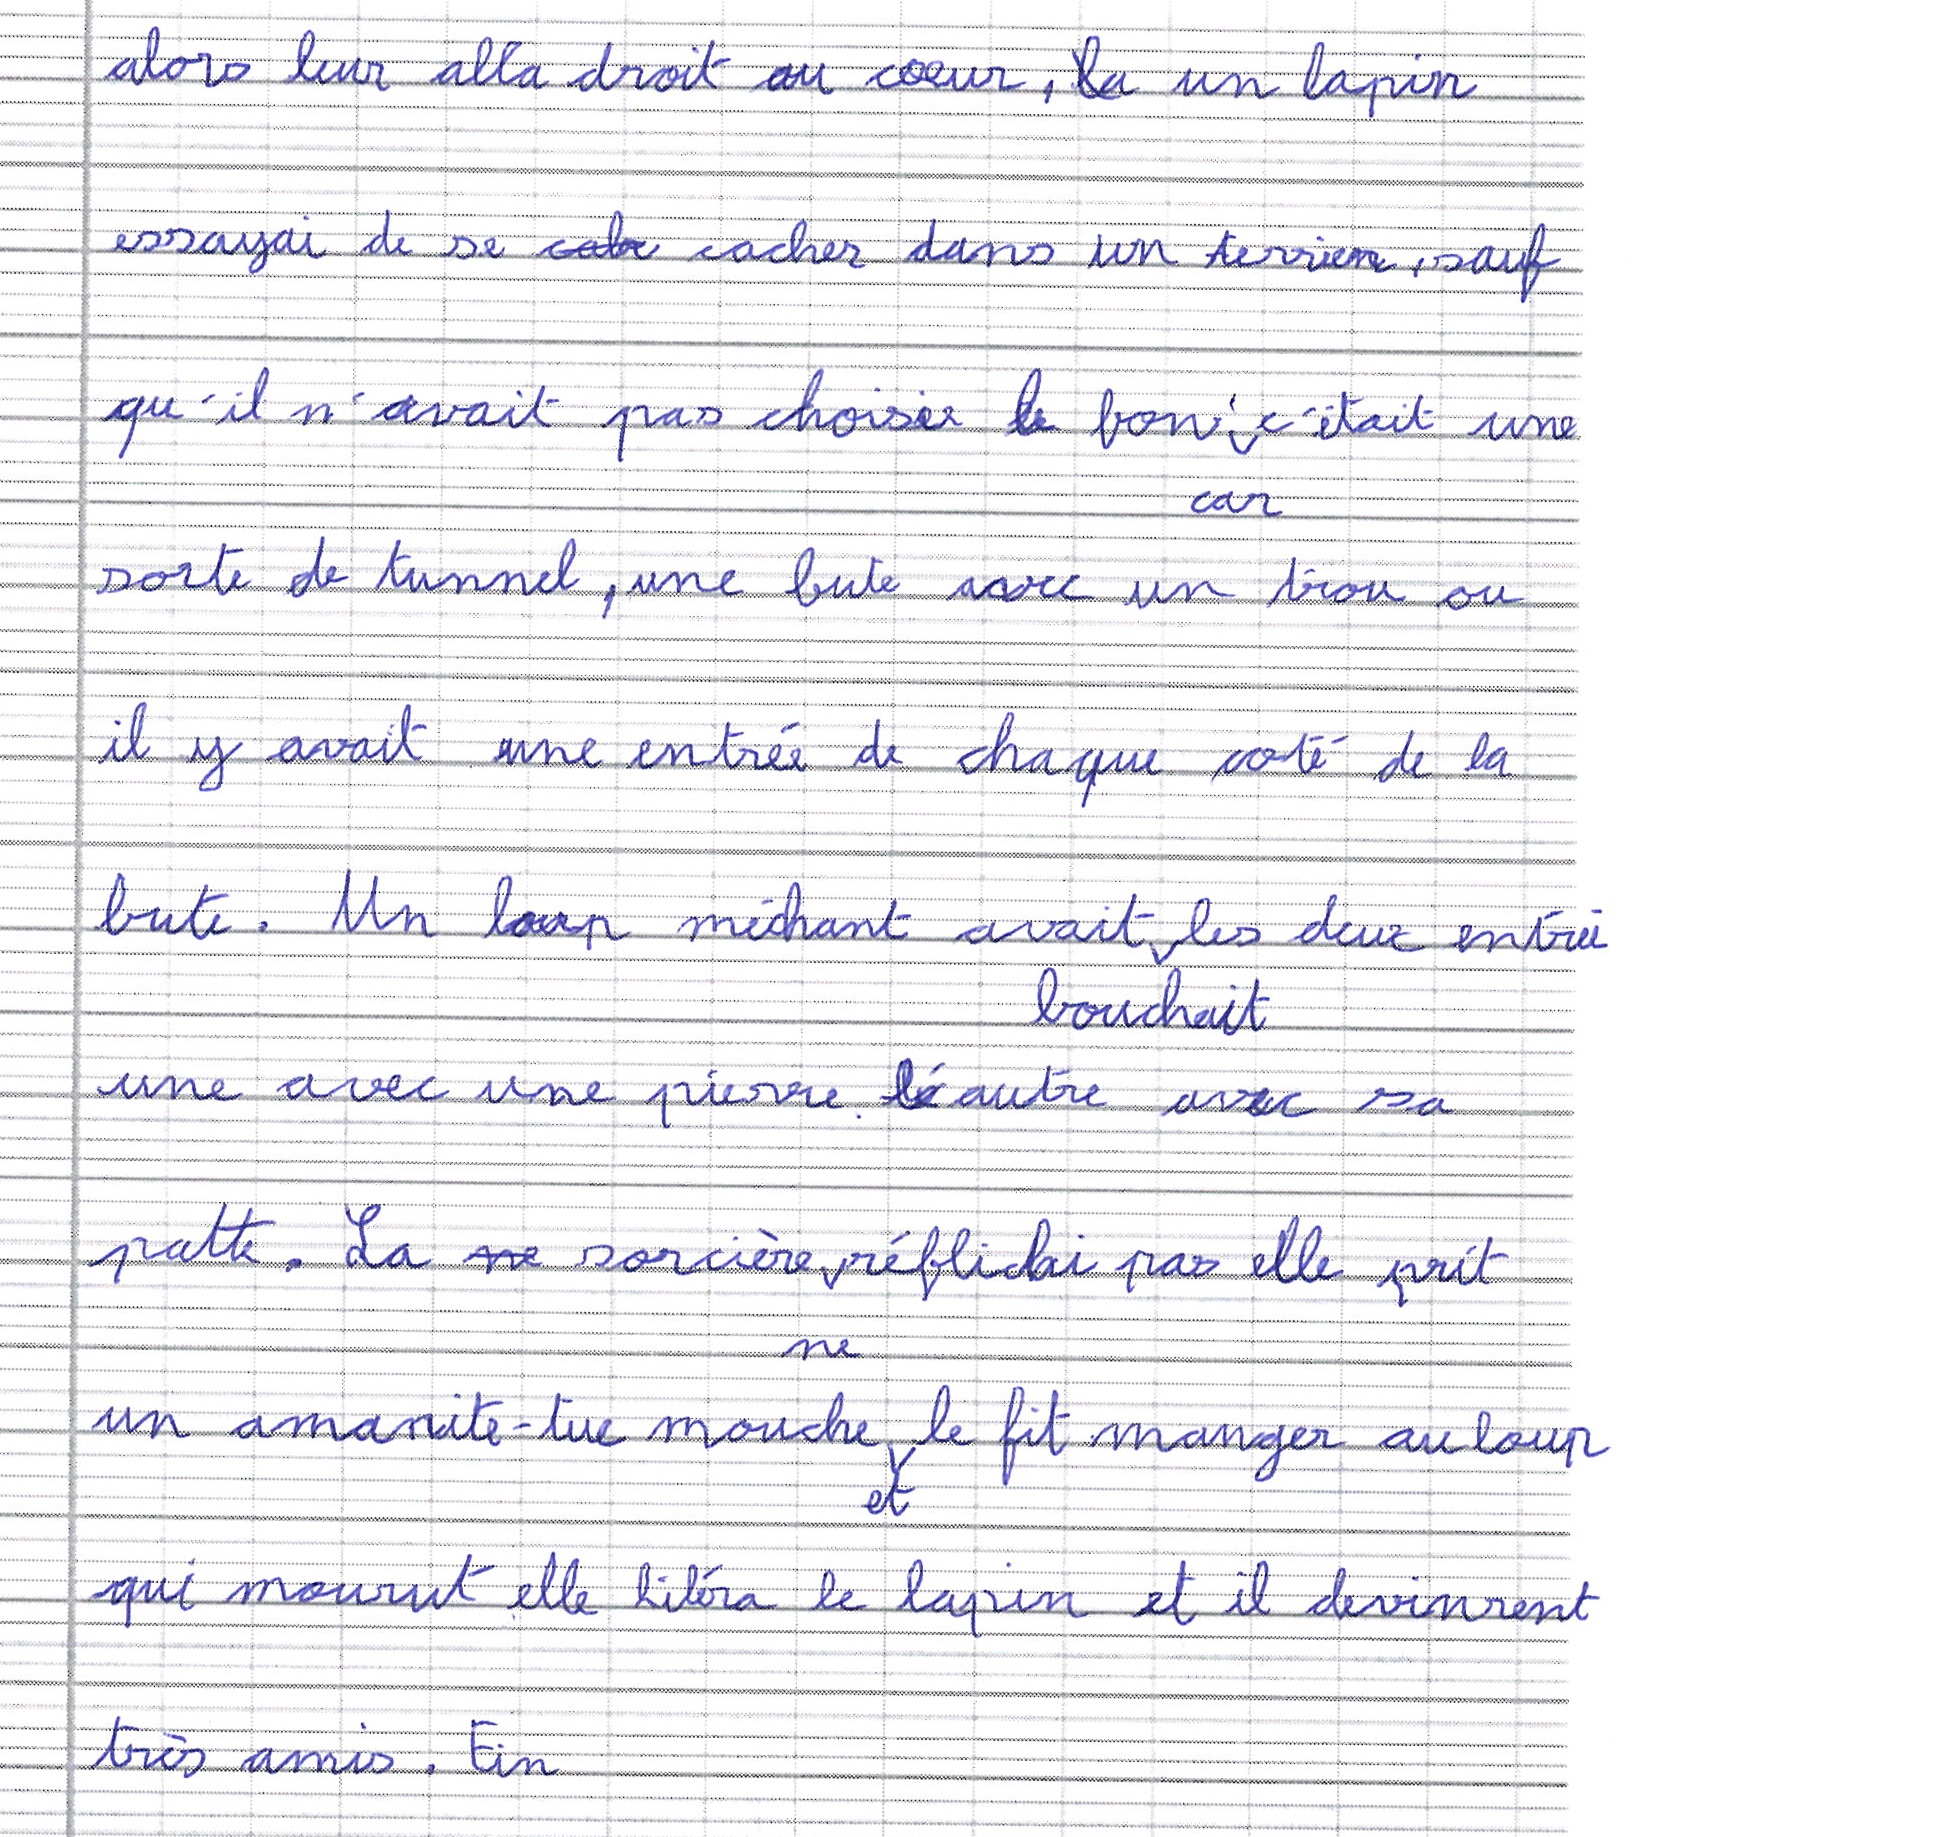 alors leur alla droit au cœur, la un lapin
essayai de se cacher dans un terrier, sauf
qu'il n'avait pas choisie le bon, c'était une
car
sorte de tunnel, une bute avec un trou ou
il y avait une entrée de chaque coté de la
bute. Un loup méchant avait les deux entrée
bouchait
une avec une pierre. l'autre avec sa
patte. La sorcière réflichi pas elle prit
ne
un amanite-tue mouche le fit manger au loup
et
qui mourut elle libéra le lapin et il devinrent
très amis. Fin